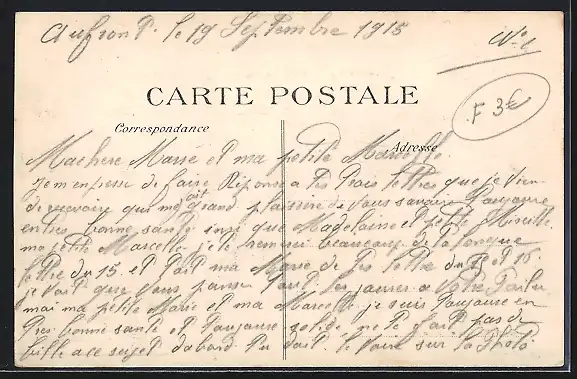 Aufron P. le 19 Septembre 1915
No 1
F 3€
CARTE POSTALE
Correspondance
Adresse
Machere Marie et ma petite Marcelle.
Jem enpresse de faire Réponse a tes trois lettres que je vien
de recevoir qui me fait grand plaisire de vous savoire Toujoure
en tres bonne santé insi que Madelaine et petite
ma petite Marcelle je te remerci beaucoup de ta longue
lettre du 15. et toit ma Marie de tes lettre du 15 et 16
je voit que vous panser tout les jours a votre Partu
moi ma petite Marie et ma Marcelle je suis Toujoure en
tres bonne sante et Toujoure solide ne te fait pas de
bille a ce sujet dabord tu doit le voire sur la Photo